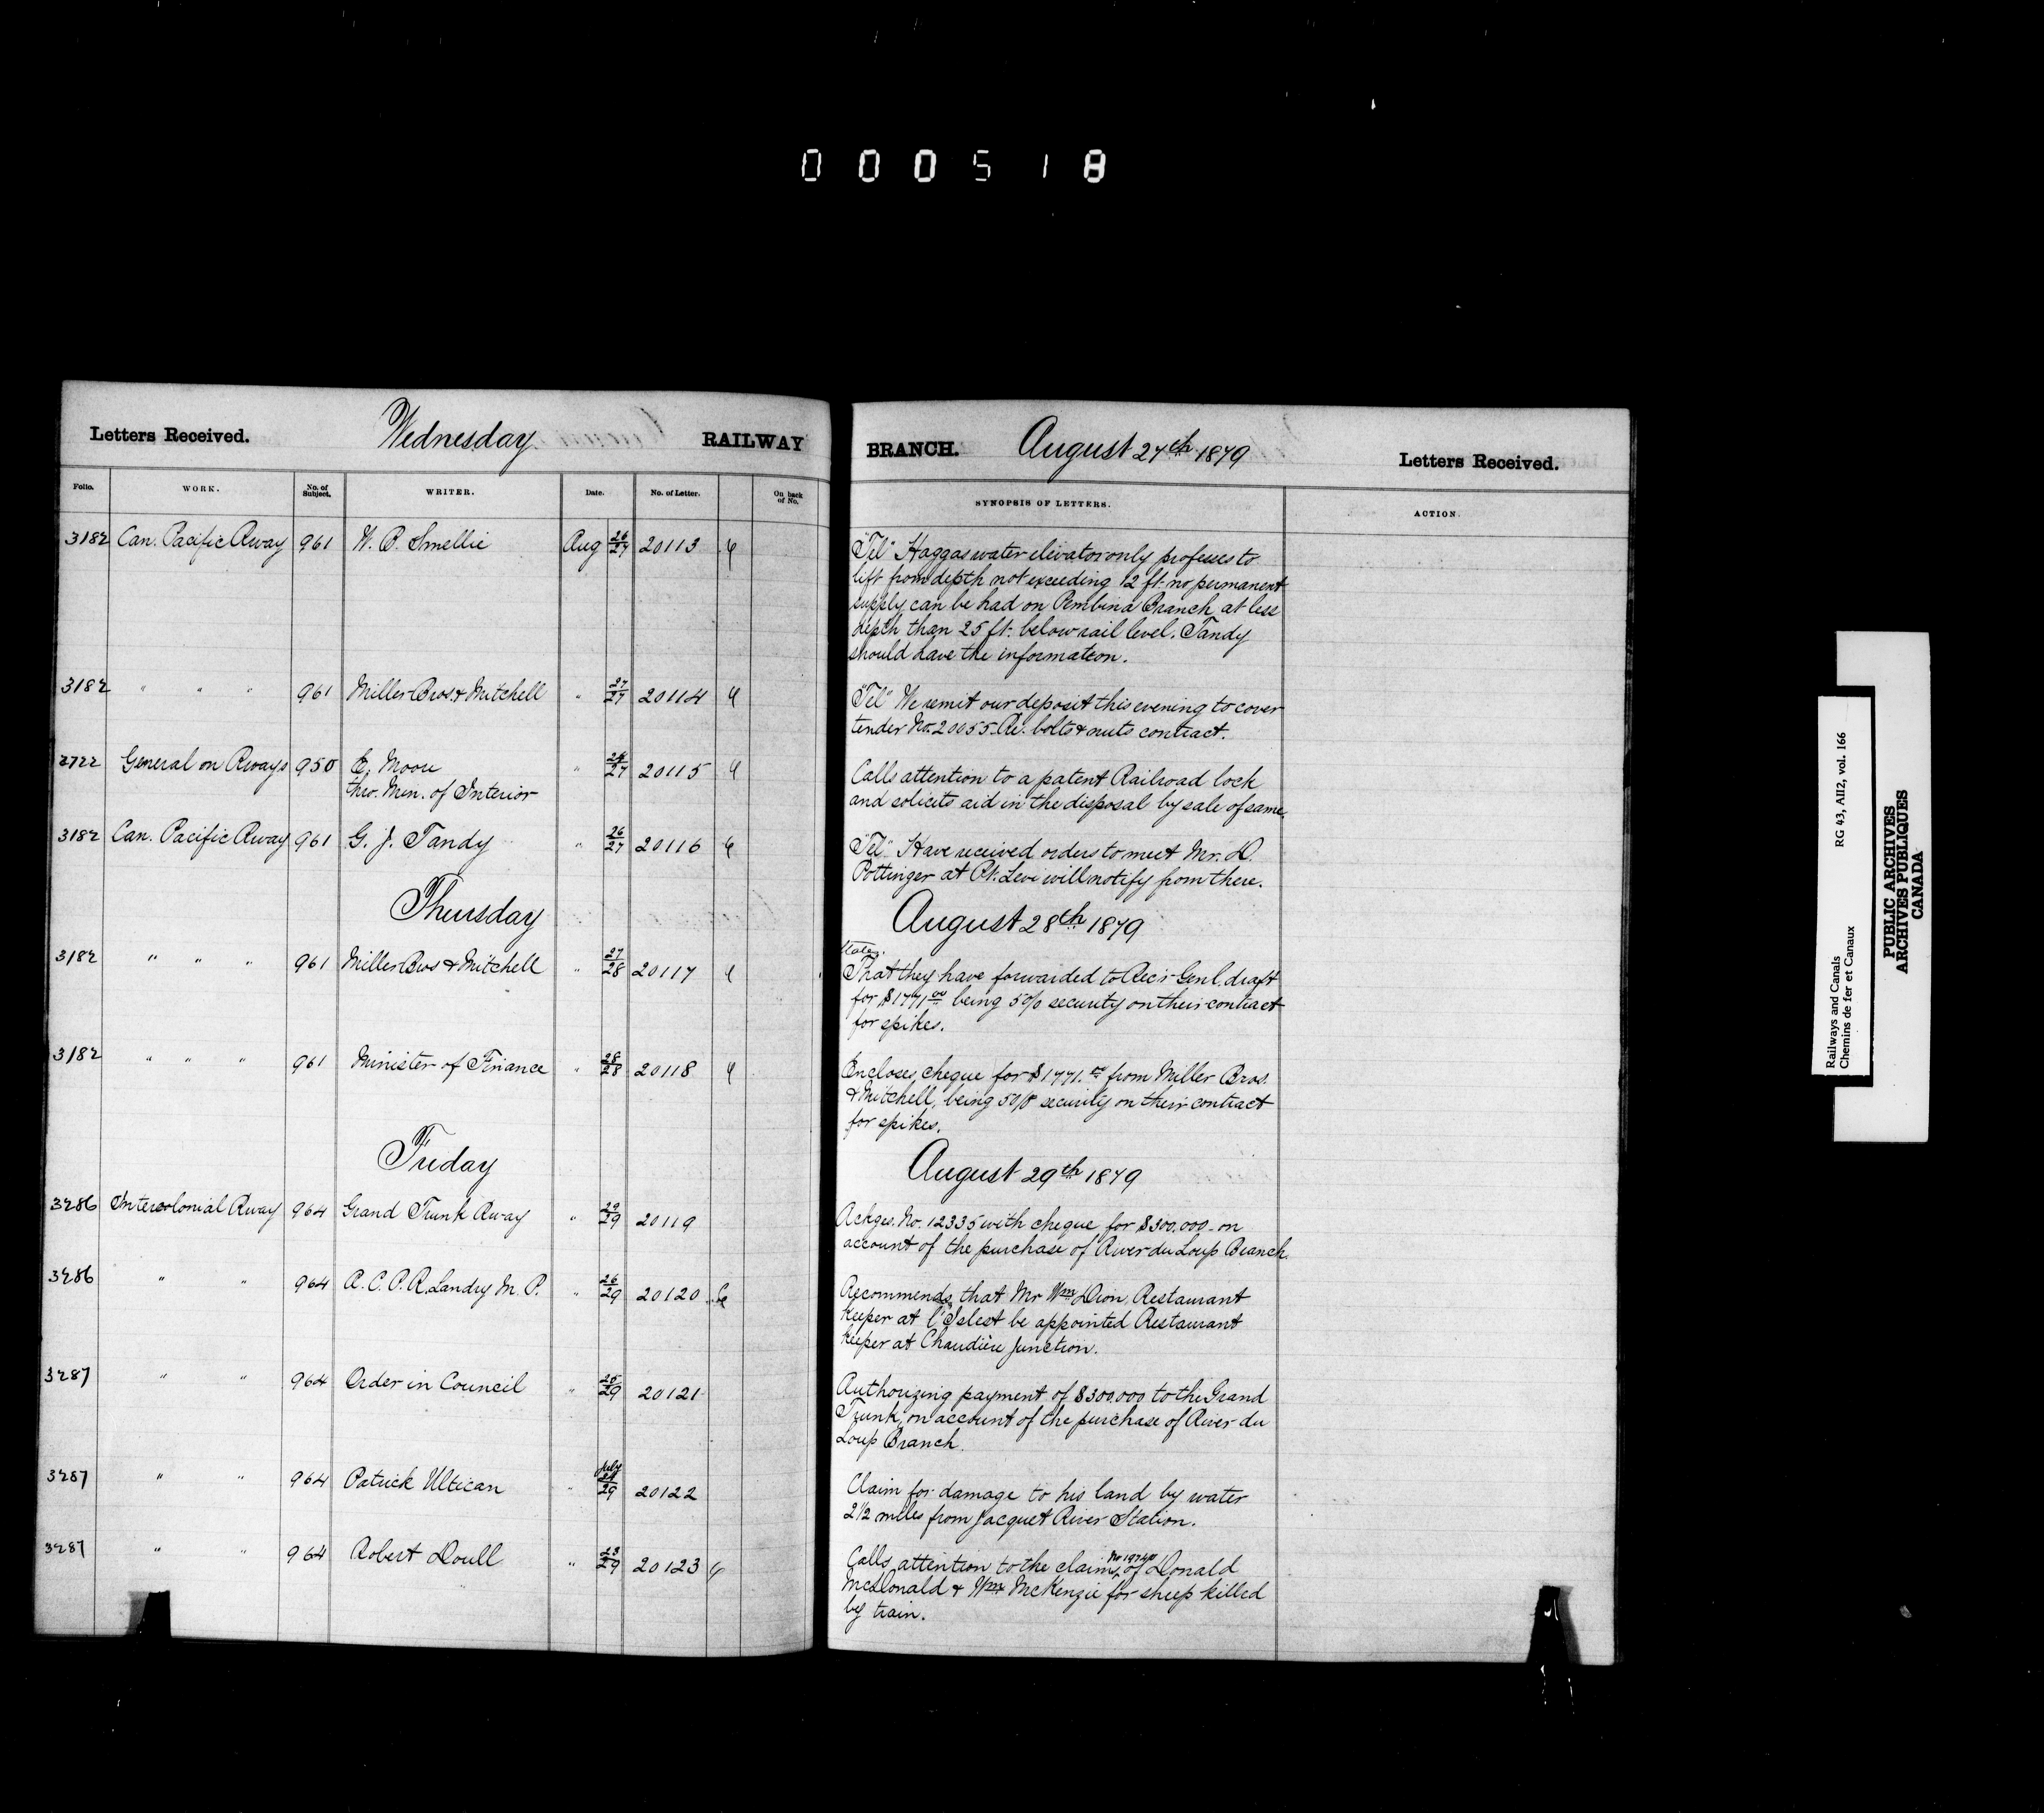 000518
Letters Received. Wednesday RAILWAY
BRANCH. August 27th 1879 Letters Received.
Folio. WORK. No. of Subject. WRITER. Date. No. of Letter. On back of No.
SYNOPSIS OF LETTERS. ACTION.
3182 Can. Pacific Rway 961 W. B. Smellie Aug 26/27 20113
"Tel" Haggas water elevator only professes to
lift from depth not exceeding 12 ft. no permanent
supply can be had on Pembina Branch at less
depth than 25 ft. below rail level. Tandy
should have the information.
3182 " " " 961 Miller Bros. & Mitchell " 27/27 20114
"Tel" We remit our deposit this evening to cover
tender No. 20055. Re. bolts & nuts contract.
2722 General on Rways 950 E. Moore " /27 20115
thro. Min. of Interior
Calls attention to a patent Railroad lock
and solicits aid in the disposal by sale of same.
3182 Can. Pacific Rway 961 G. J. Tandy " 26/27 20116
"Tel" Have received orders to meet Mr. D.
Pottinger at Pt. Levi will notify from there.
Thursday August 28th 1879
3182 " " " 961 Miller Bros & Mitchell " 27/28 20117
States.
That they have forwarded to Rec'r Genl. draft
for $1771.00 being 5 0/0 security on their contract
for spikes.
3182 " " " 961 Minister of Finance " 28/28 20118
Encloses cheque for $1771. from Miller Bros.
& Mitchell, being 5 0/0 security on their contract
for spikes.
Friday August 29th 1879
3286 Intercolonial Rway 964 Grand Trunk Rway " 29/29 20119
Ackges. No. 12335 with cheque for $300.000 on
account of the purchase of River du Loup Branch.
3286 " " 964 A. C. P. R. Landry M. P. " 26/29 20120
Recommends, that Mr Wm Dion, Restaurant
keeper at l'Islest be appointed Restaurant
keeper at Chaudière Junction.
3287 " " 964 Order in Council " 25/29 20121
Authorizing payment of $300.000 to the Grand
Trunk, on account of the purchase of River du
Loup Branch.
3287 " " 964 Patrick Ultican " July /29 20122
Claim for damage to his land by water
2 1/2 miles from Jacquet River Station.
3287 " " 964 Robert Doull " 23/29 20123
Calls attention to the claim of Donald
McDonald & Wm McKenzie for sheep killed
by train.
Railways and Canals RG 43, AII2, vol. 166
Chemins de fer et Canaux
PUBLIC ARCHIVES
ARCHIVES PUBLIQUES
CANADA